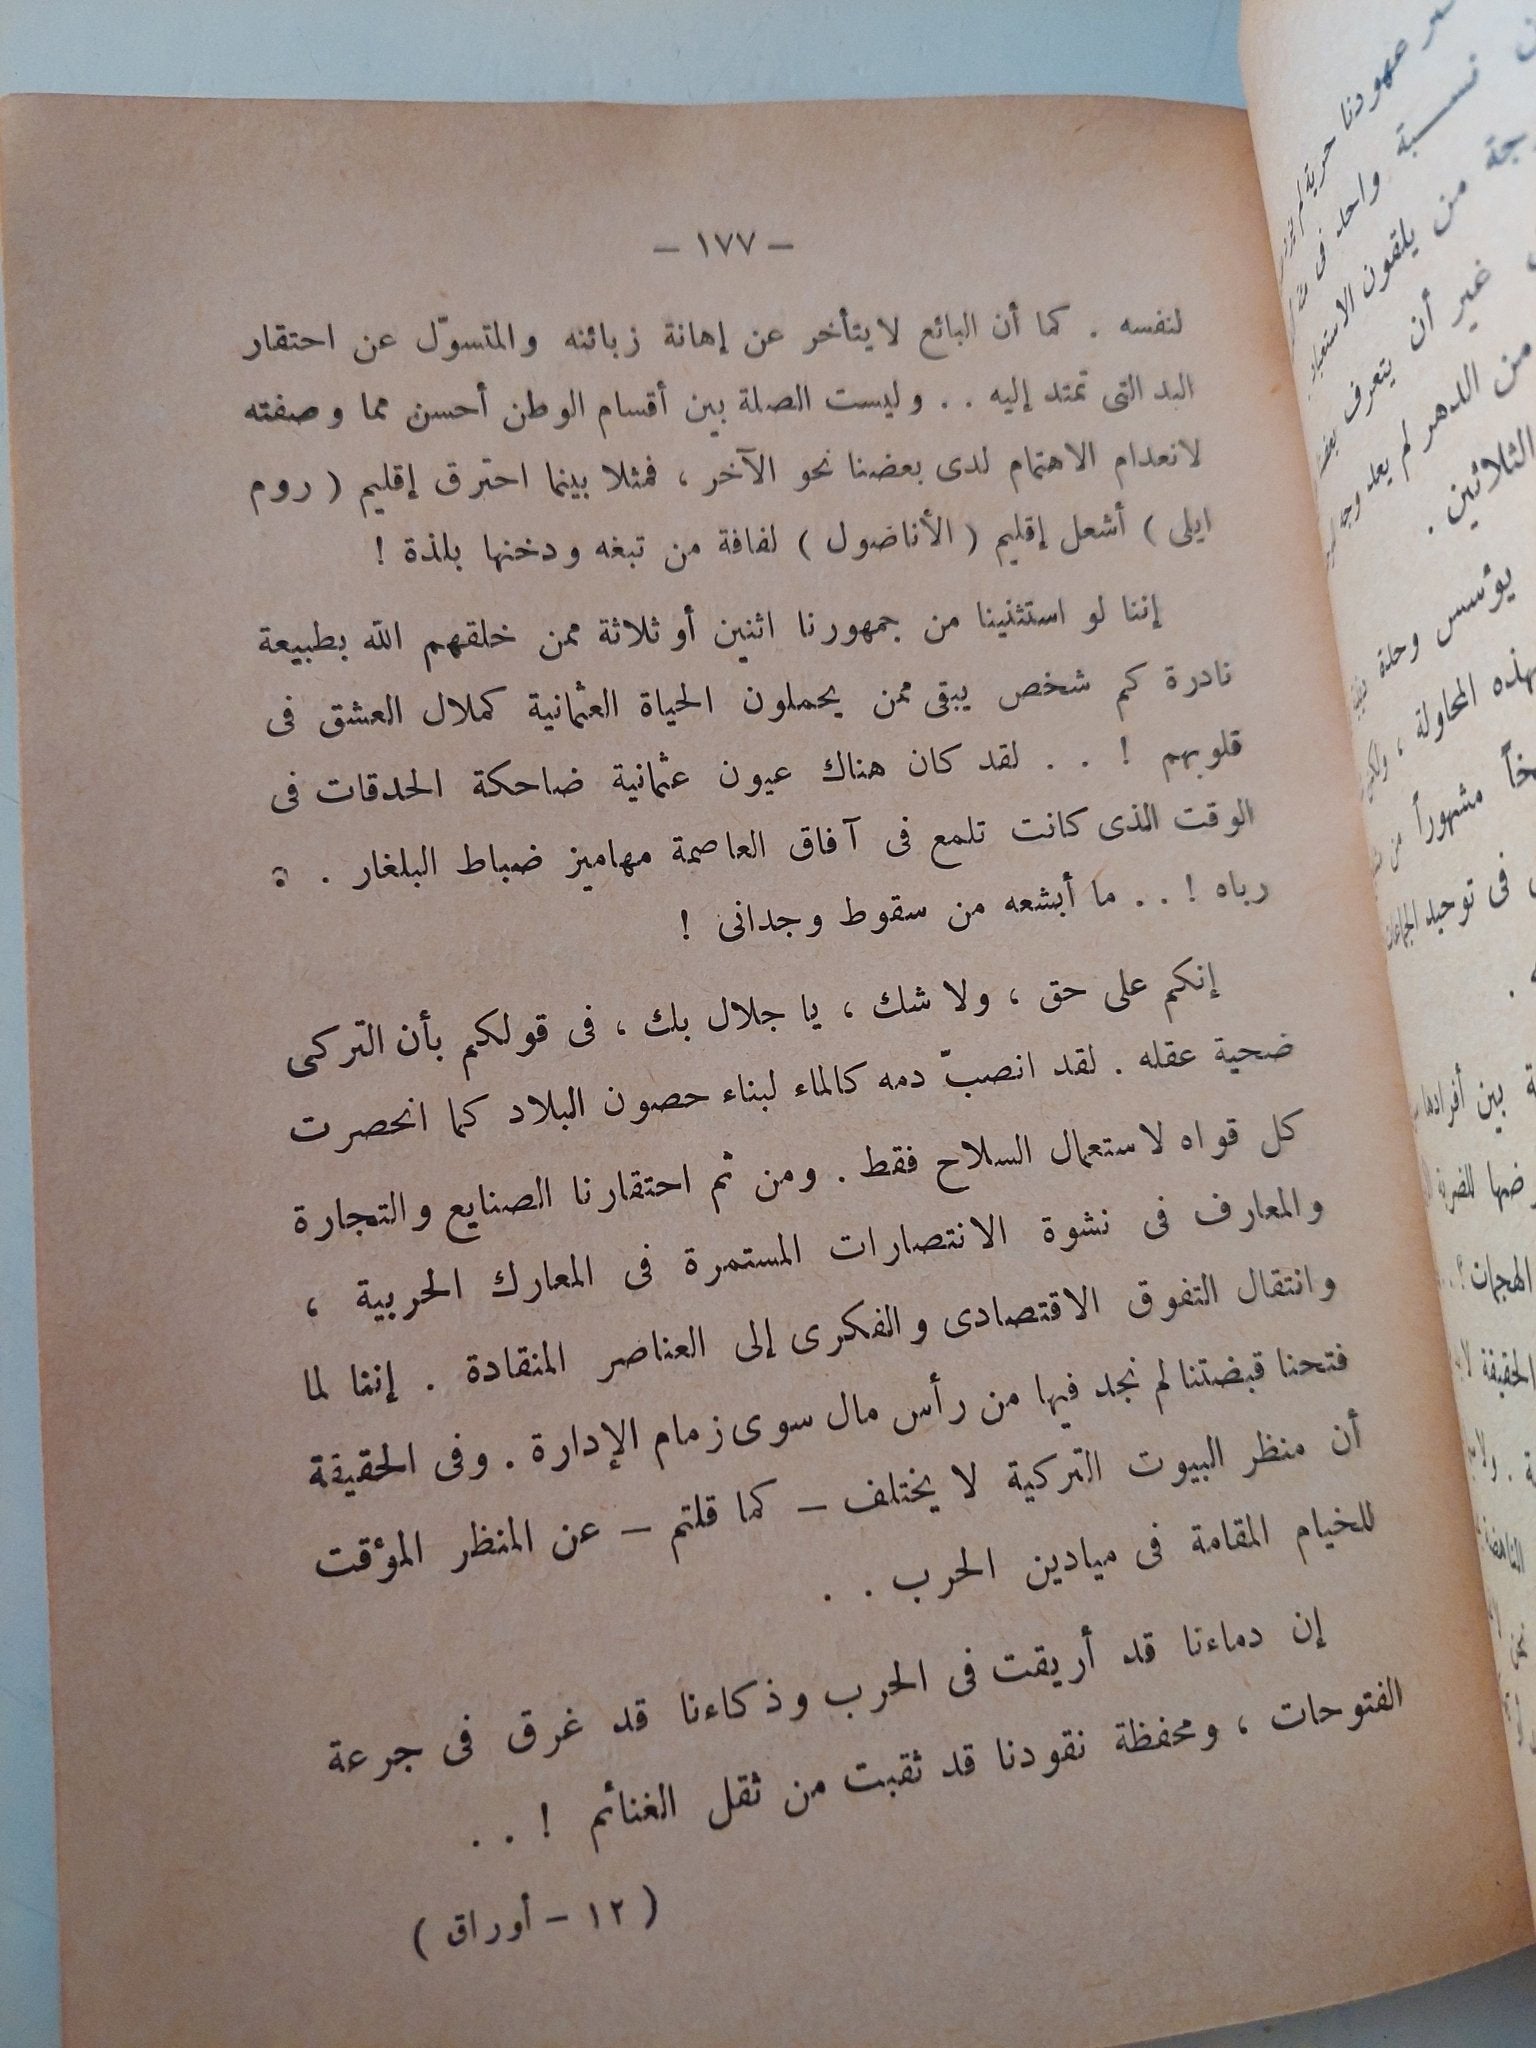 — ١٧٧ —
لنفسه . كما أن البائع لا يتأخر عن إهانة زبائنه والمتسوّل عن احتقار
اليد التى تمتد إليه . . وليست الصلة بين أقسام الوطن أحسن مما وصفته
لانعدام الاهتمام لدى بعضنا نحو الآخر ، فمثلا بينما احترق إقليم ( روم
ايلى ) أشعل إقليم ( الأناضول ) لفافة من تبغه ودخنها بلذة !
إننا لو استثنينا من جمهورنا اثنين أو ثلاثة ممن خلقهم الله بطبيعة
نادرة كم شخص يبقى ممن يحملون الحياة العثمانية كملال العشق فى
قلوبهم ! . . لقد كان هناك عيون عثمانية ضاحكة الحدقات فى
الوقت الذى كانت تلمع فى آفاق العاصمة مهاميز ضباط البلغار .
رباه ! . . ما أبشعه من سقوط وجدانى !
إنكم على حق ، ولا شك ، يا جلال بك ، فى قولكم بأن التركى
ضحية عقله . لقد انصبّ دمه كالماء لبناء حصون البلاد كما انحصرت
كل قواه لاستعمال السلاح فقط . ومن ثم احتقارنا الصنايع والتجارة
والمعارف فى نشوة الانتصارات المستمرة فى المعارك الحربية ،
وانتقال التفوق الاقتصادى والفكرى إلى العناصر المنقادة . إننا لما
فتحنا قبضتنا لم نجد فيها من رأس مال سوى زمام الإدارة . وفى الحقيقة
أن منظر البيوت التركية لا يختلف — كما قلتم — عن المنظر المؤقت
للخيام المقامة فى ميادين الحرب . .
إن دماءنا قد أريقت فى الحرب وذكاءنا قد غرق فى جرعة
الفتوحات ، ومحفظة نقودنا قد ثقبت من ثقل الغنائم ! . .
( ١٢ — أوراق )
عهودنا حرية لم
نسبة واحد فى
من يلقون
غير أن يتعرف
من الدهر لم يعد
الثلاثين .
يؤسس وحدة
بهذه المحاولة ،
مشهوراً من
فى توحيد الجماعات
بين أفرادها
الهجمات ؟
الحقيقة